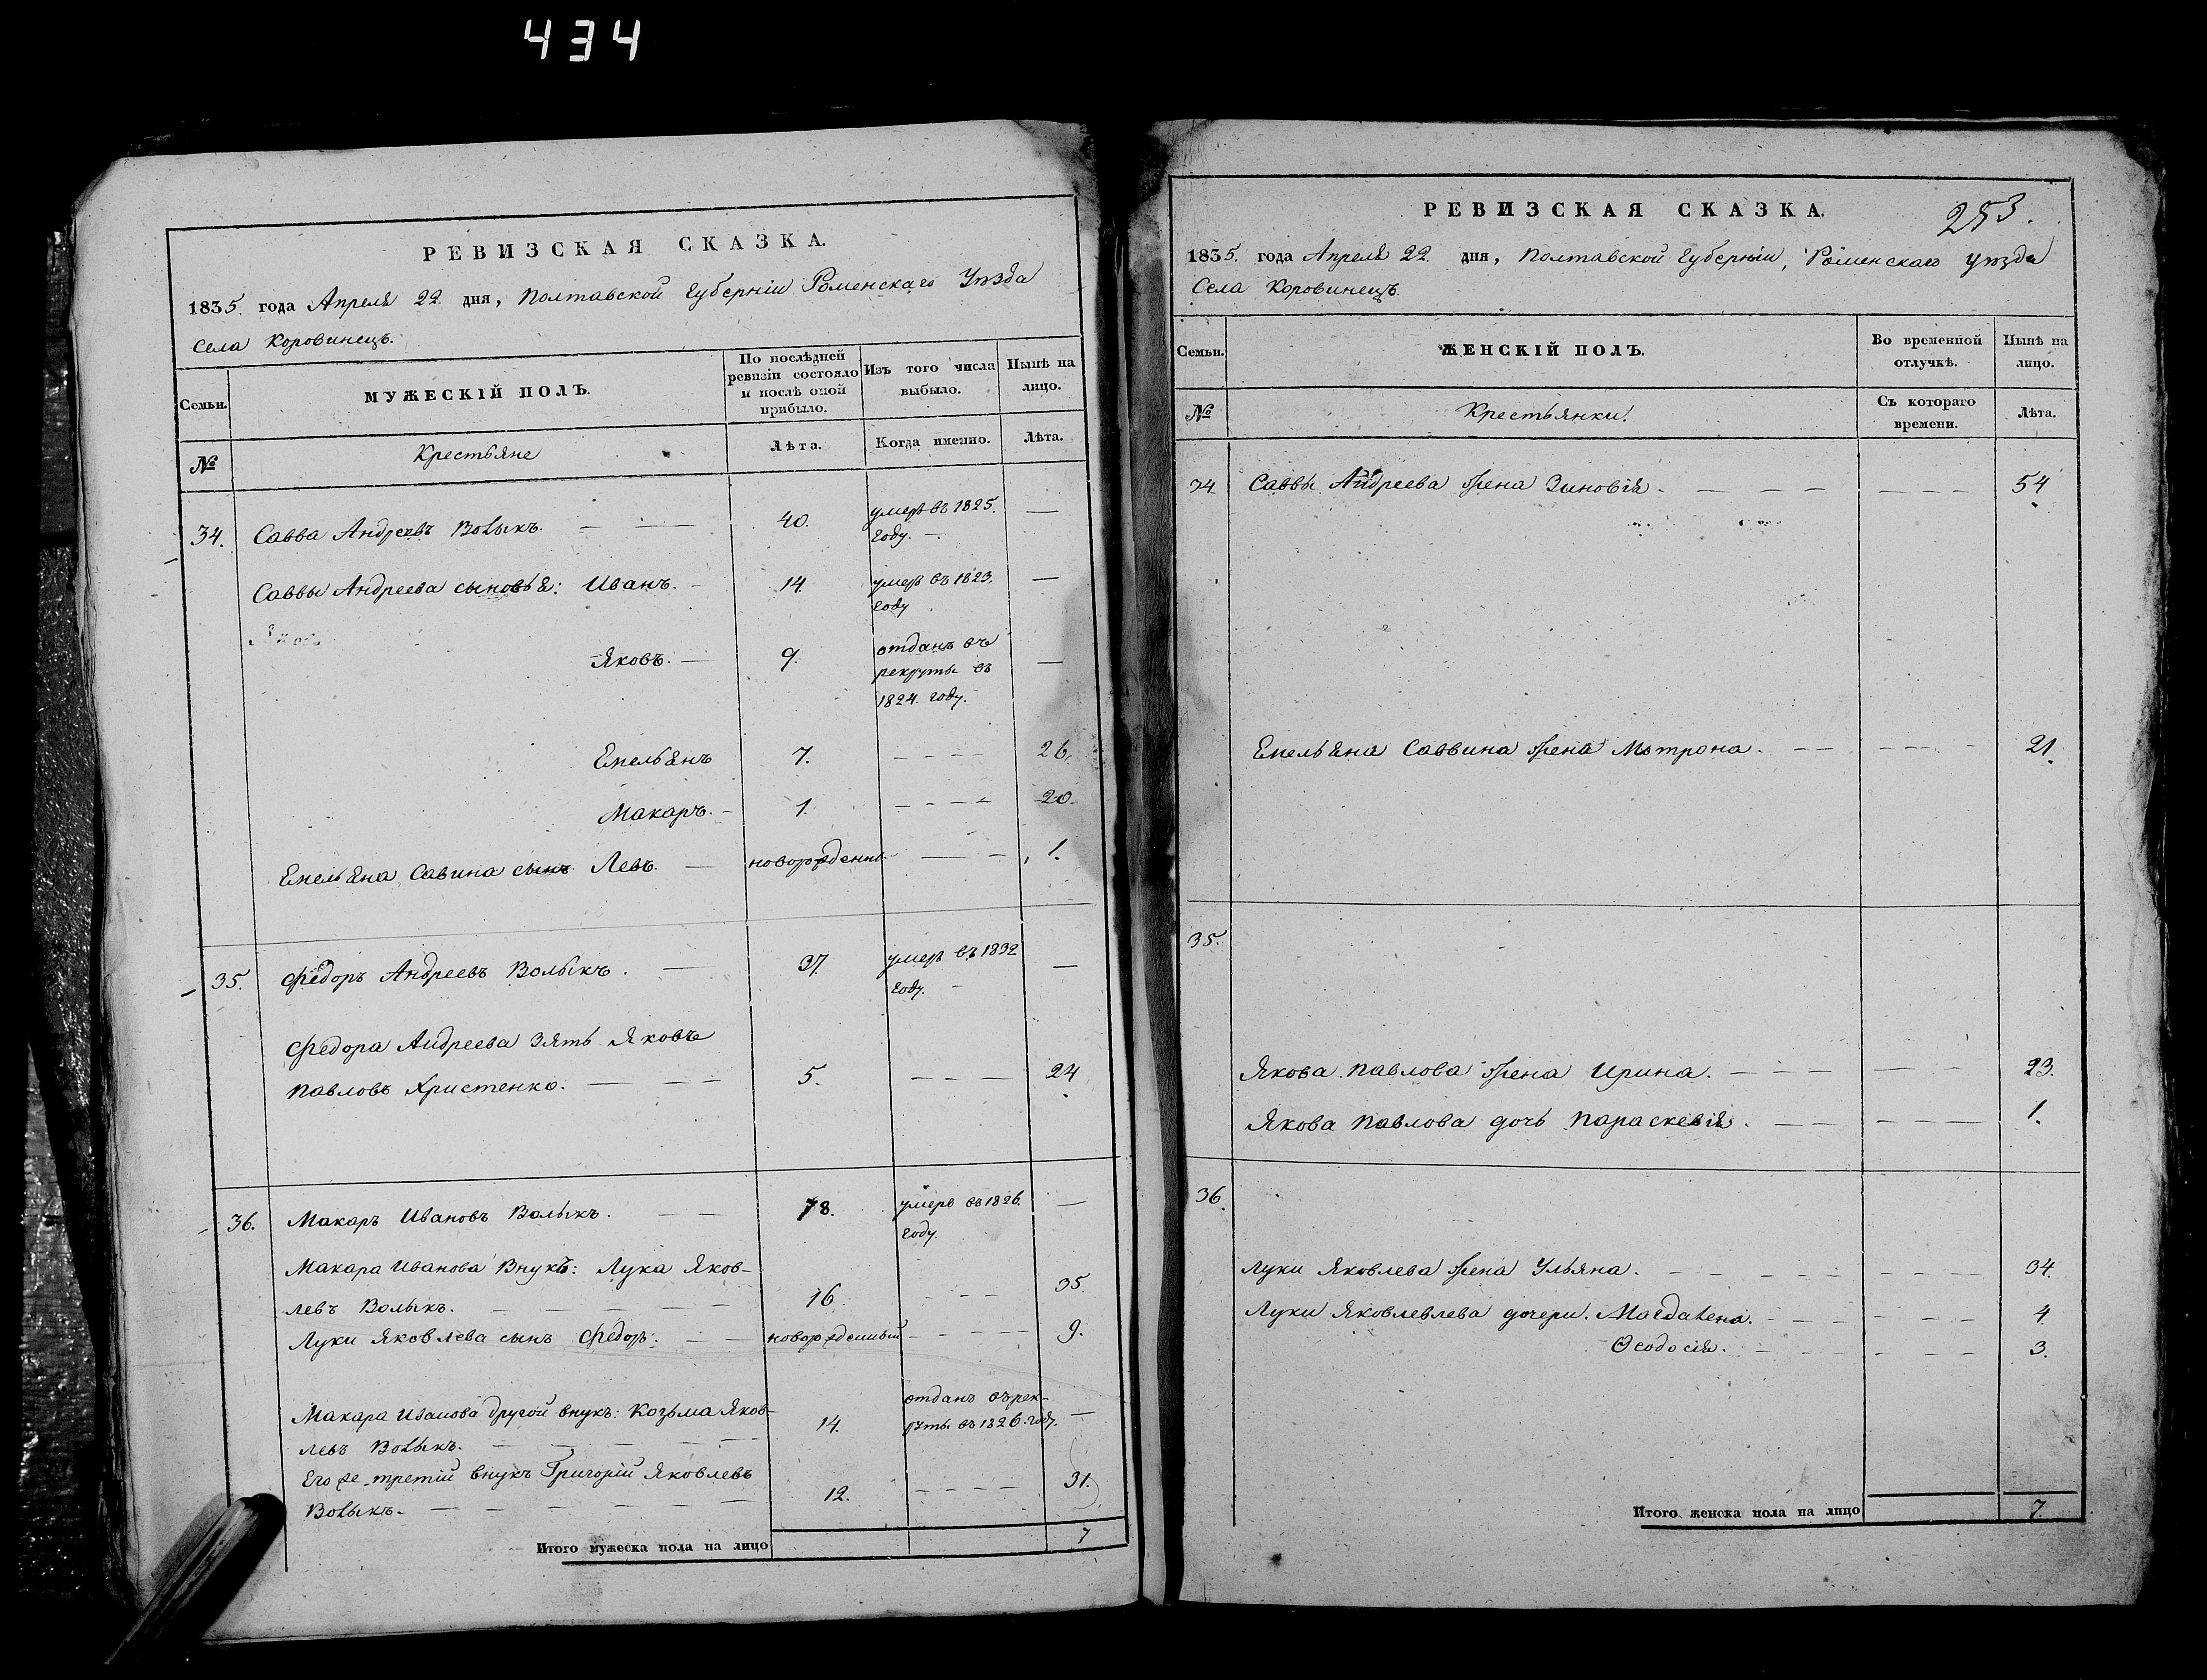 434
РЕВИЗСКАЯ СКАЗКА.
1835. года Апреля 22 дня, Полтавской Губерніи Роменскаго Уѣзда
Села Коровинецъ.
Семьи.
МУЖЕСКІЙ ПОЛЪ.
По послѣдней
ревизіи состояло
и послѣ оной
прибыло.
Изъ того числа
выбыло.
Нынѣ на
лицо.
№
Крестьяне
Лѣта.
Когда именно.
Лѣта.
34. Савва Андреевъ Волыкъ. — — 40. умеръ въ 1825. —
году. —
Саввы Андреева сыновья: Иванъ. — 14. умеръ въ 1823. —
году
Яковъ. — 9. отданъ въ —
рекруты въ
1824. году.
Емельянъ 7. — — — 26.
Макаръ. — 1. — — — — 20.
Емельяна Савина сынъ Левъ. — новорожденно — — 1.
35. Федоръ Андреевъ Волыкъ. — 37. умеръ въ 1832 —
году. —
Федора Андреева зять Яковъ
Павловъ Христенко. — — — 5. — — — 24.
36. Макаръ Ивановъ Волыкъ. — — 78. умеръ въ 1826. —
году.
Макара Иванова Внукъ: Лука Яков-
левъ Волыкъ. — — — — — 16. — — — 35.
Луки Яковлева сынъ Федоръ. — — новорожденный — — — — 9.
Макара Иванова другой внукъ: Козьма Яков-
отданъ въ рек-
левъ Волыкъ. — — — — — 14. руты въ 1826. году. —
Его же третій внукъ Григорій Яковлевъ
Волыкъ. — — — — — — 12. — — — — 31.
Итого мужеска пола на лицо 7
РЕВИЗСКАЯ СКАЗКА.
253.
1835. года Апреля 22. дня, Полтавской Губерніи, Роменскаго уѣзда
Села Коровинецъ.
Семьи.
ЖЕНСКІЙ ПОЛЪ.
Во временной
отлучкѣ.
Нынѣ на
лицо.
№
Крестьянки.
Съ котораго
времени.
Лѣта.
34 Саввы Андреева жена Зиновія. — — — — — — — 54.
Емельяна Саввина жена Мотрона. — — — — — 21.
35.
Якова Павлова жена Ирина. — — — — — 23.
Якова Павлова дочь Параскевія. — — — — — — 1.
36.
Луки Яковлева жена Ульяна. — — — — — — — — 34.
Луки Яковлевлева дочери. Магдалена. — — — — — — — 4.
Ѳеодосія. — — — — — — — 3.
Итого женска пола на лицо 7.